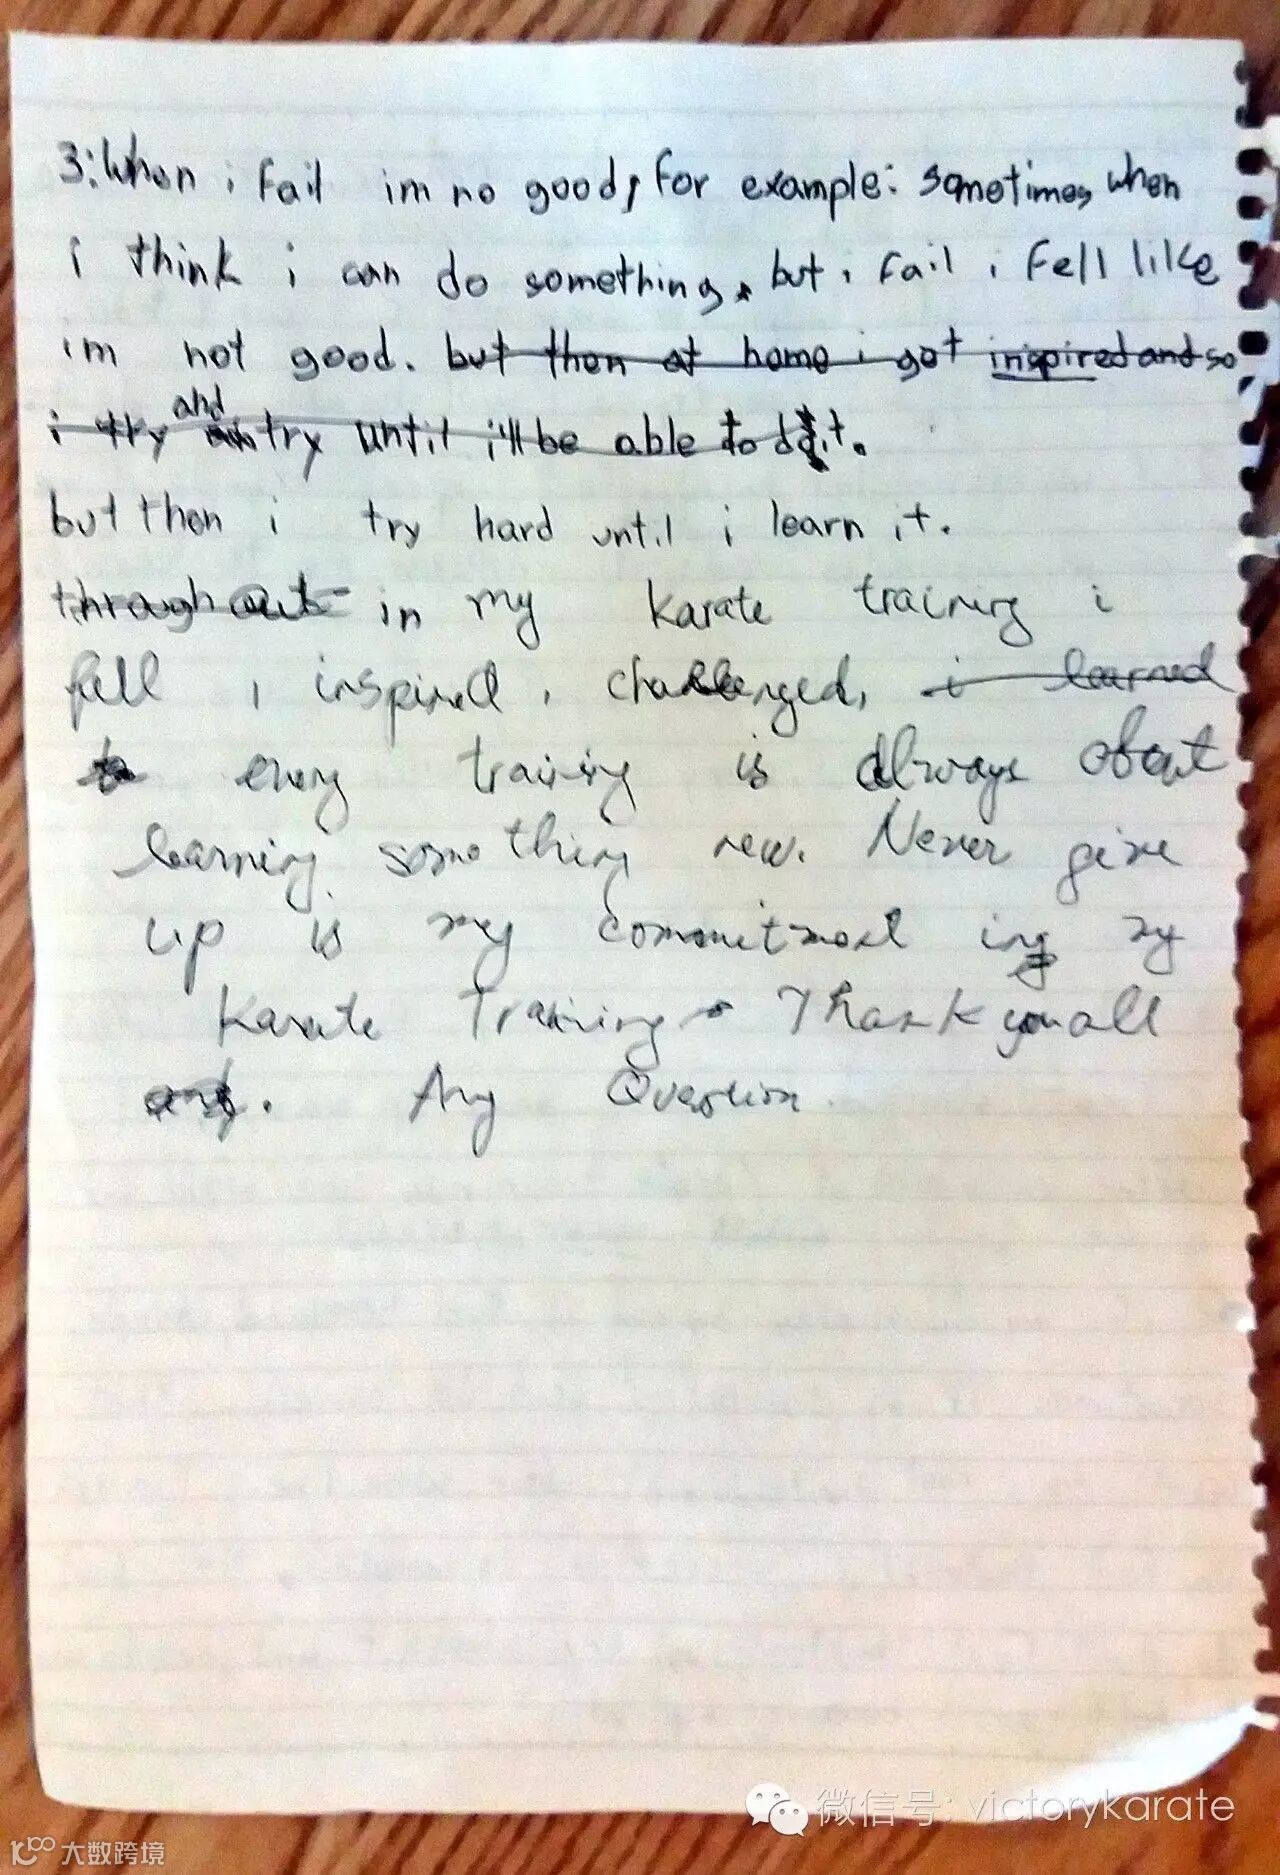 3: When i fail im no good, for example: sometimes when
i think i can do something, but i fail i fell like
im not good. but then at home i got inspired and so
i try and try until i'll be able to do it.
but then i try hard until i learn it.
through out in my karate training i
fell, inspired, challenged, i learned
every training is always about
learning something new. Never give
up is my commitment in my
Karate Training Thank you all
Any Question.
微信号: victorykarate
大数跨境